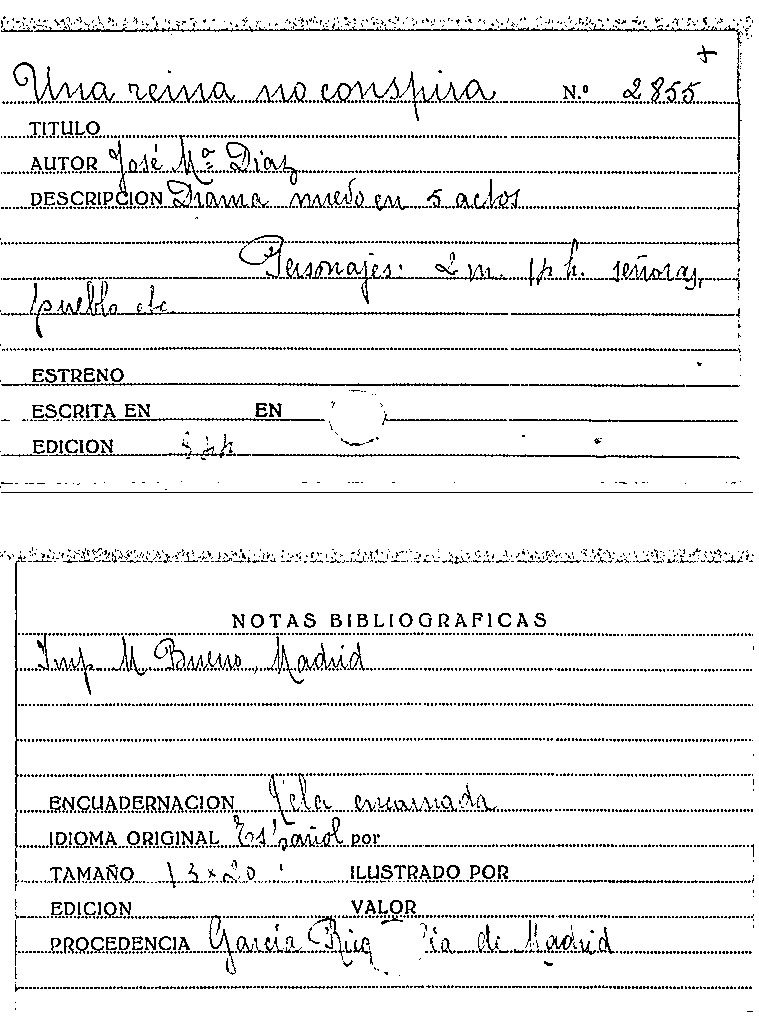 +
Una reina no conspira N.º 2855
TITULO
AUTOR José Mª Diaz
DESCRIPCION Drama nuevo en 5 actos
Personajes: 2 m. 1p. h. señoras,
pueblo etc.
ESTRENO
ESCRITA EN EN
EDICION
NOTAS BIBLIOGRAFICAS
Imp. M. Bueno, Madrid
ENCUADERNACION Tela encarnada
IDIOMA ORIGINAL Español por
TAMAÑO 13×20 ILUSTRADO POR
EDICION VALOR
PROCEDENCIA García Rico de Madrid